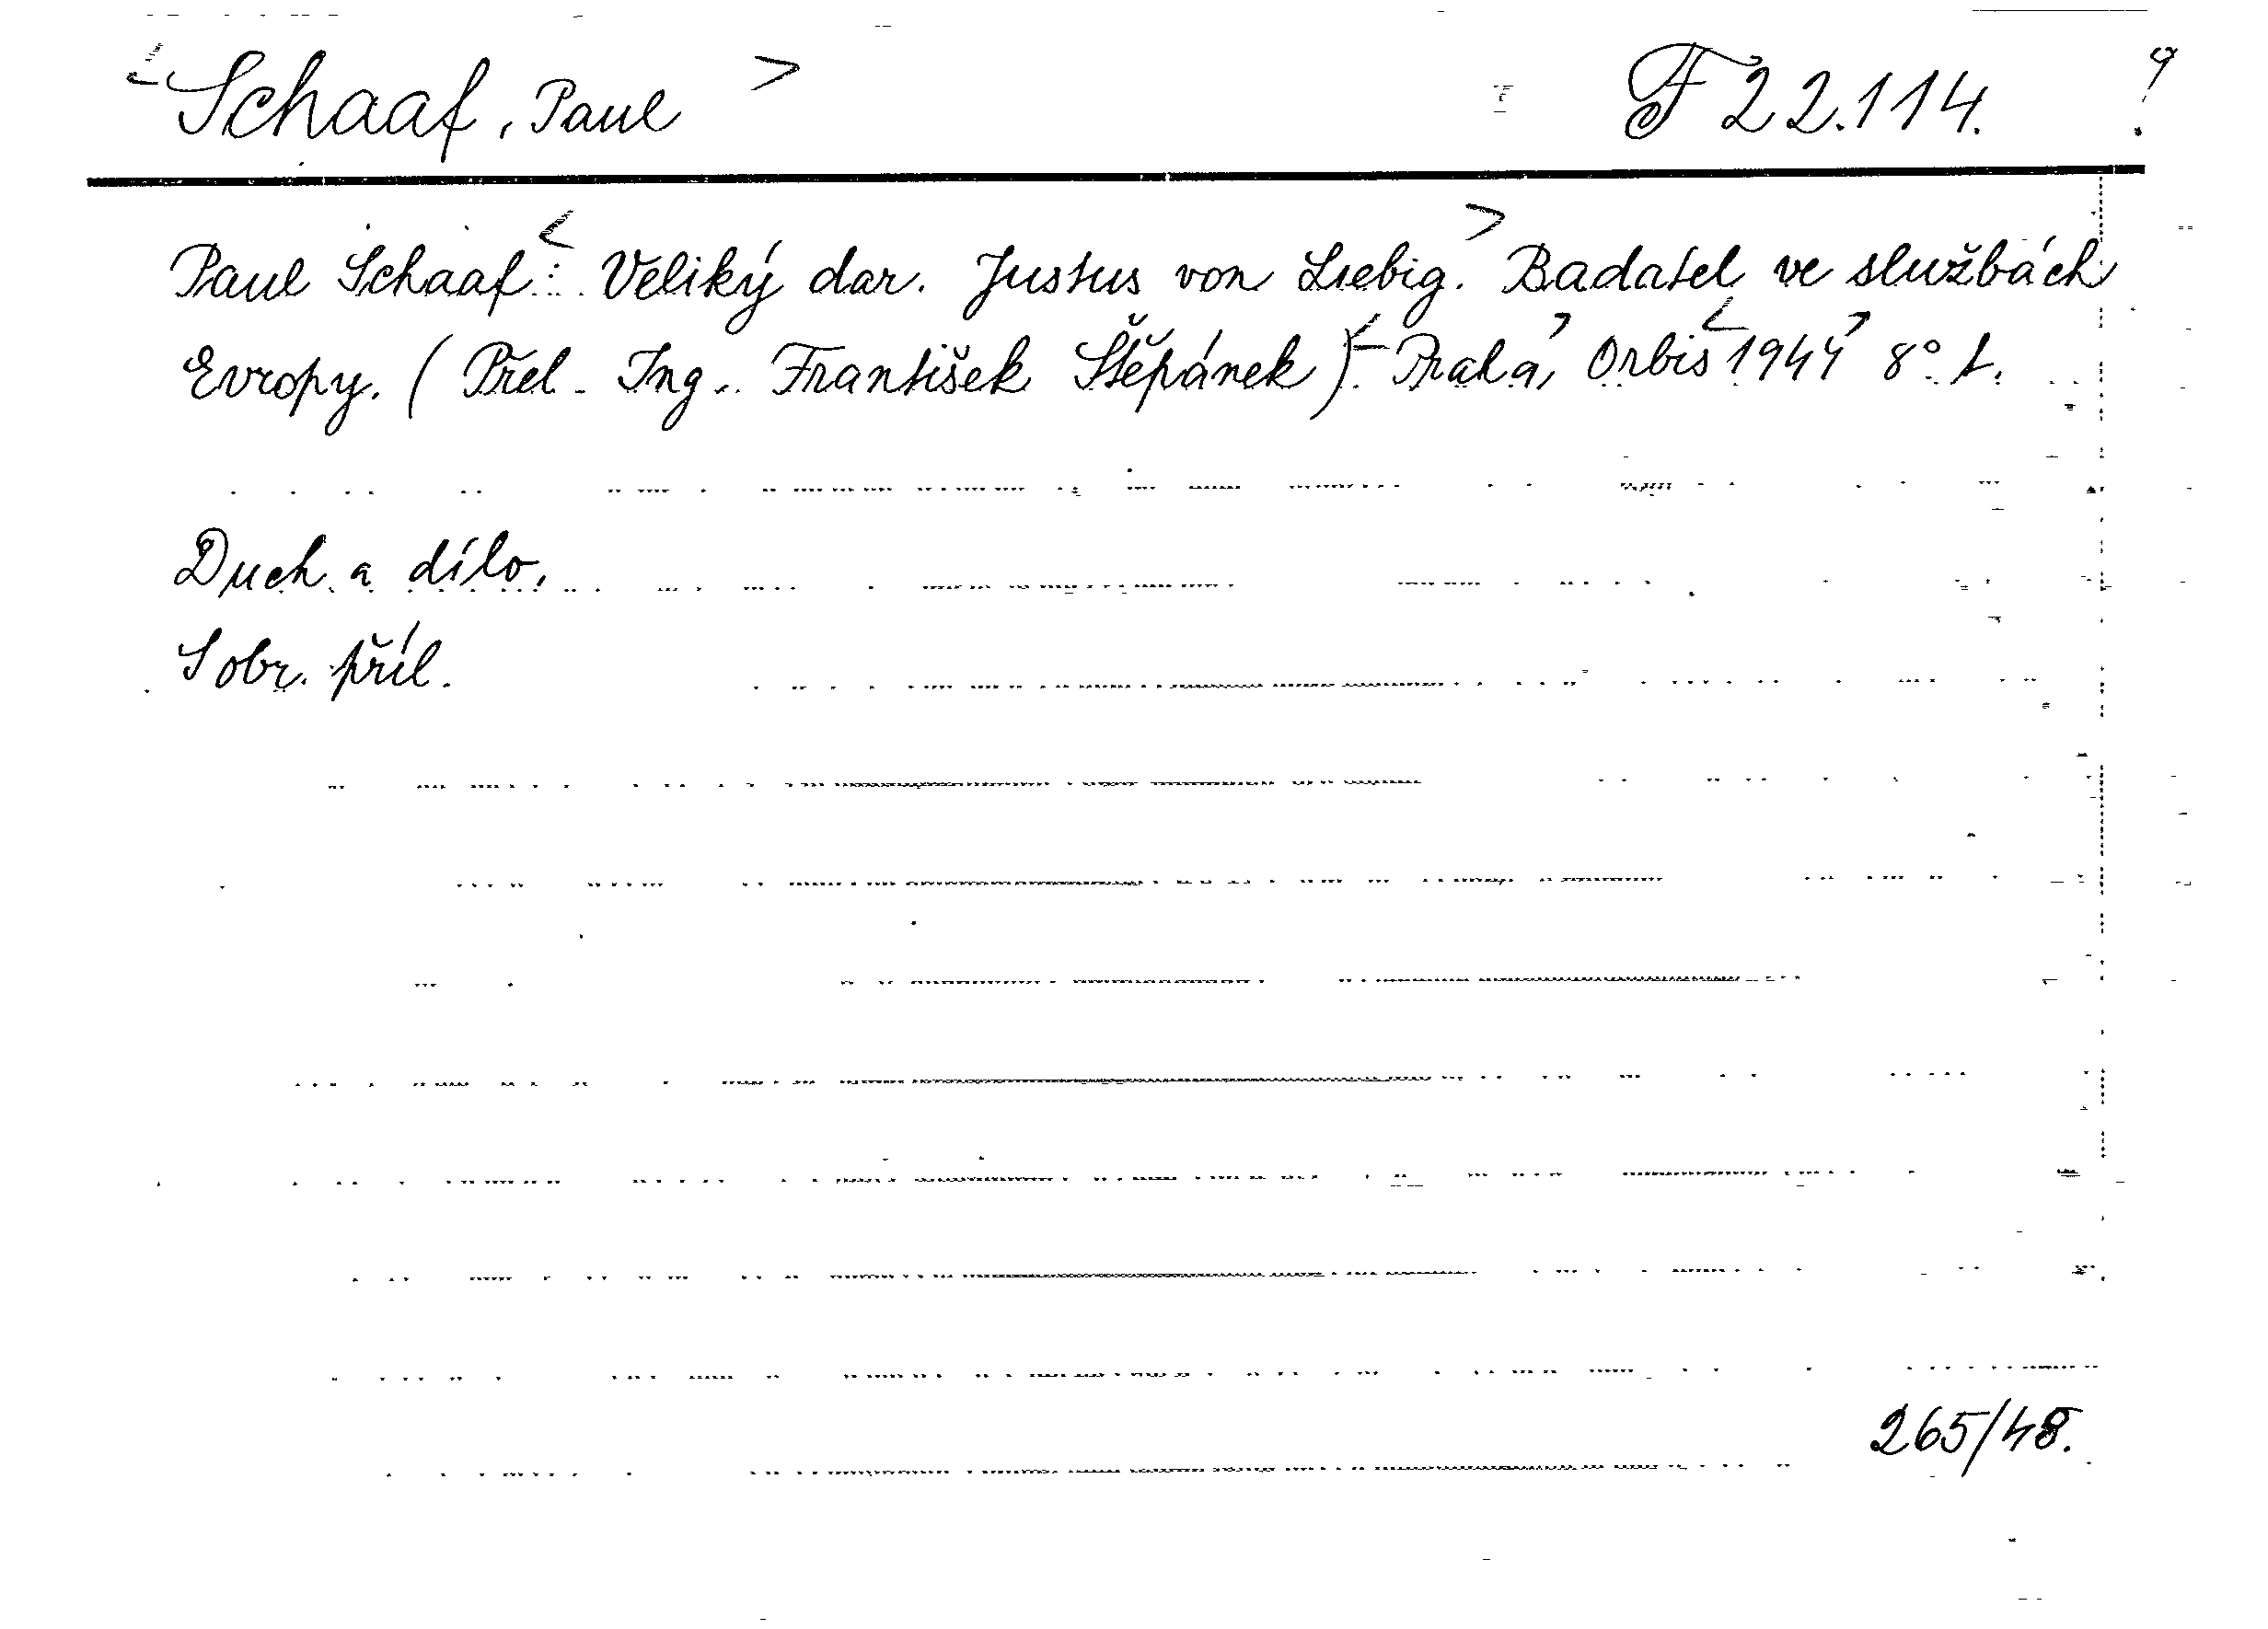 <Schaaf, Paul> F 22.114.
Paul Schaaf: <Veliký dar. Justus von Liebig.> Badatel ve službách
Evropy. (Přel. Ing. František Štěpánek) <Praha>, Orbis <1944> 8°.
Duch a dílo.
S obr. příl.
265/48.